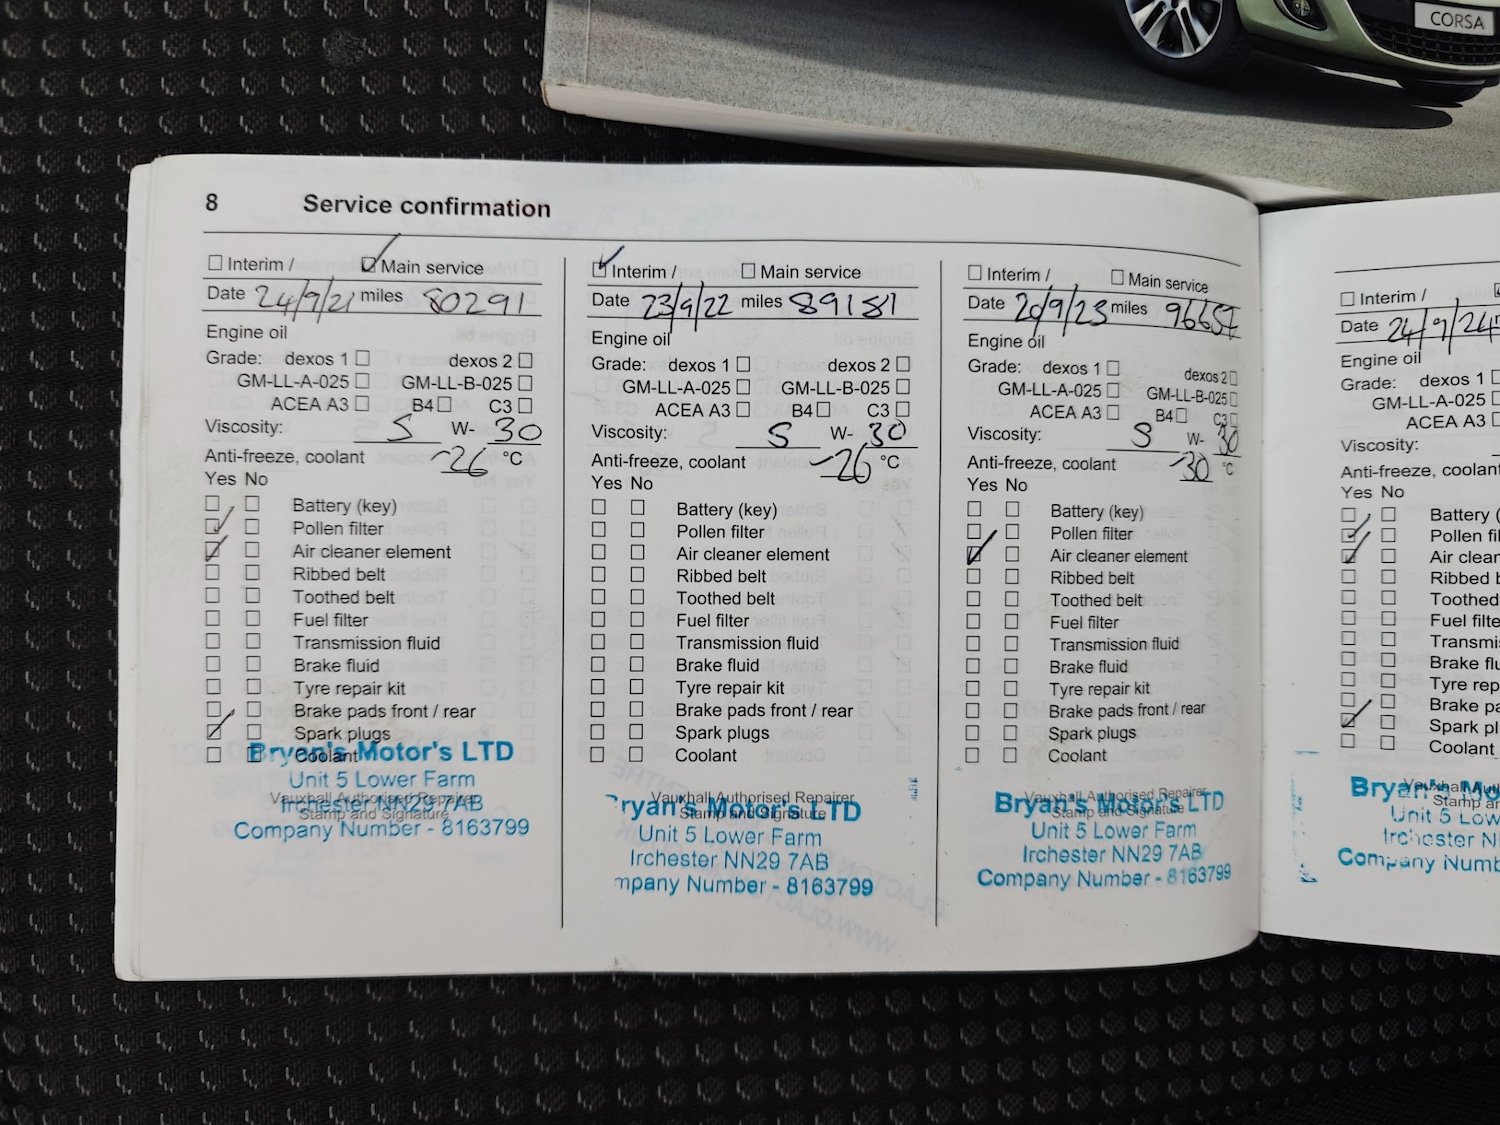 CORSA
8 Service confirmation
Interim / Main service
Date 24/9/21 miles 80291
Engine oil
Grade: dexos 1 dexos 2
GM-LL-A-025 GM-LL-B-025
ACEA A3 B4 C3
Viscosity: 5 W- 30
Anti-freeze, coolant -26 °C
Yes No
Battery (key)
Pollen filter
Air cleaner element
Ribbed belt
Toothed belt
Fuel filter
Transmission fluid
Brake fluid
Tyre repair kit
Brake pads front / rear
Spark plugs
Coolant
Bryan's Motor's LTD
Unit 5 Lower Farm
Vauxhall Authorised Repairer
Irchester NN29 7AB
Stamp and Signature
Company Number - 8163799
Interim / Main service
Date 23/9/22 miles 89181
Engine oil
Grade: dexos 1 dexos 2
GM-LL-A-025 GM-LL-B-025
ACEA A3 B4 C3
Viscosity: 5 W- 30
Anti-freeze, coolant -26 °C
Yes No
Battery (key)
Pollen filter
Air cleaner element
Ribbed belt
Toothed belt
Fuel filter
Transmission fluid
Brake fluid
Tyre repair kit
Brake pads front / rear
Spark plugs
Coolant
Vauxhall Authorised Repairer
ryan's Motor's LTD
Stamp and Signature
Unit 5 Lower Farm
Irchester NN29 7AB
mpany Number - 8163799
Interim / Main service
Date 20/9/23 miles 96657
Engine oil
Grade: dexos 1 dexos 2
GM-LL-A-025 GM-LL-B-025
ACEA A3 B4 C3
Viscosity: 5 W- 30
Anti-freeze, coolant -30 °C
Yes No
Battery (key)
Pollen filter
Air cleaner element
Ribbed belt
Toothed belt
Fuel filter
Transmission fluid
Brake fluid
Tyre repair kit
Brake pads front / rear
Spark plugs
Coolant
Vauxhall Authorised Repairer
Bryan's Motor's LTD
Stamp and Signature
Unit 5 Lower Farm
Irchester NN29 7AB
Company Number - 8163799
Interim /
Date 24/9/24
Engine oil
Grade: dexos 1
GM-LL-A-025
ACEA A3
Viscosity:
Anti-freeze, coolant
Yes No
Battery (
Pollen fil
Air clean
Ribbed b
Toothed
Fuel filte
Transmis
Brake flu
Tyre rep
Brake pa
Spark pl
Coolant
Vauxhall Au
Bryan's Mo
Stamp a
Unit 5 Low
Irchester N
Company Numb